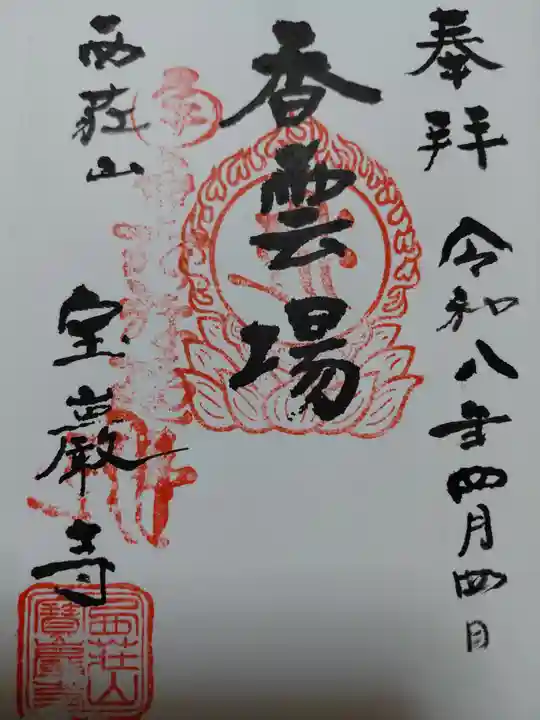 奉拜
令和八年四月四日
香雲場
西荘山
宝巖寺
西荘山
寶巖寺